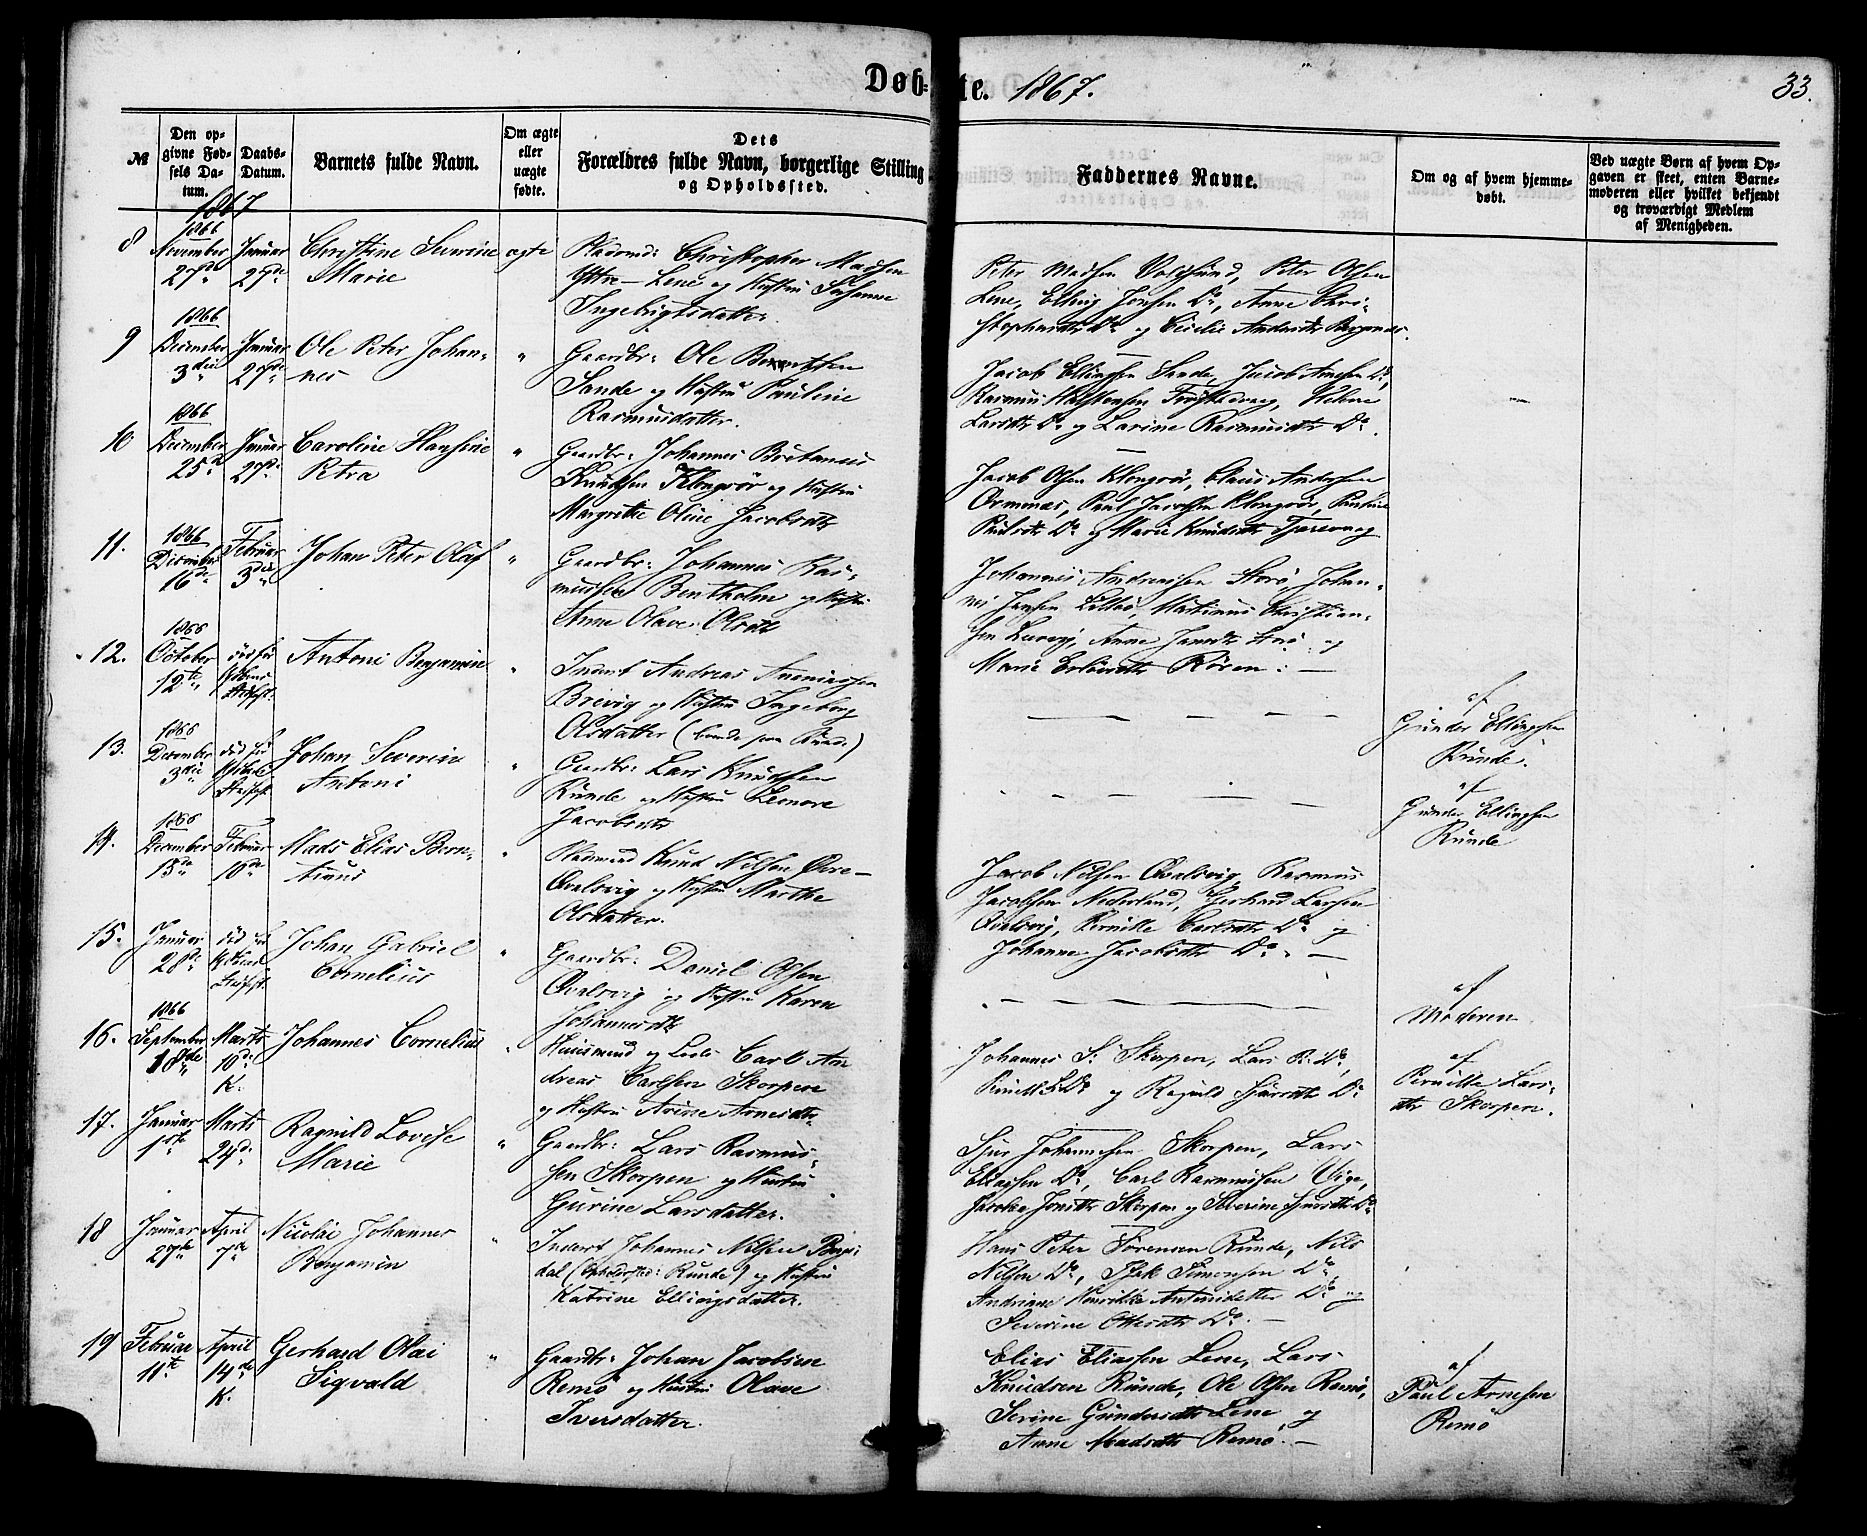 Døb-te. 1867.
33.
№
Den op-
givne Fød-
sels Da-
tum.
Daabs-
Datum.
Barnets fulde Navn.
Om ægte
eller
uægte
fødte.
Dets
Forældres fulde Navn, borgerlige Stilling
og Opholdssted.
Faddernes Navne.
Om og af hvem hjemme-
døbt.
Ved uægte Børn af hvem Op-
gaven er skeet, enten Barne-
moderen eller hvilket bekjendt
og troværdigt Medlem
af Menigheden.
1867
8
1866
November
27de
Januar
27de
Christine Severine
Marie
ægte
Pladsmd: Christopher Madsen
Yttre-Lene og Hustru Johanne
Ingebrigtsdatter.
Peter Madsen Voldsund, Peter Olsen
Lene, Elling Jonsen Do, Anne Chri-
stophersdtr Do og Cicelie
9
1866
December
3die
Januar
27de
Ole Peter Johan-
nes
"
Gaardbr: Ole Berntsen
Sande og Hustru Pauline
Rasmusdatter.
Jacob Ellingsen Sande, Jacob Arnesen Do,
Rasmus Frøystadvaag, Helene
Larsdtr Do og Lavine Rasmusdtr Do.
10
1866
December
25de
Januar
27de
Caroline Hansine
Petra
"
Gaardbr: Johannes Britanus
Knudsen Klongsør og Hustru
Margrethe Oline Jacobsdtr
Jacob Olsen Klongsør, Claus Andersen
Ormenæs, Paul Jacobsen Klongsør, Pauline
Paulsdtr Do og Marie Knudsdtr Tjærvaag
11.
1866
December
16de
Februar
3die
Johan Peter Olaf
"
Gaardbr: Johannes Ras-
mussen Bentholm og Hustru
Anne Olave Olsdtr
Johannes Andreassen Storø, Johan-
nes Jansen Lillø, Martinus Christian-
sen Anne Storø og
Marie Røren. —
12.
1866
October
12te
død før
Kirkens
Stadfæst.
Antoni Benjamine
"
Inderst Andreas Ananiassen
Brevig og Hustru Ingeborg
Olsdatter (boende paa Runde)
— — — — —
af
Gunder Ellingsen
Runde.
13.
1866
December
3die
død før
Kirkens
Stadfæst.
Johan Severin
Antoni
"
Gaardbr: Lars Knudsen
Runde og Hustru Leonore
Jacobsdtr
— — — — —
af
Gunder Ellingsen
Runde
14.
1866
December
13de
Februar
10de
Mads Elias Bern-
tinus
"
Pladsmand Knud Nilsen Øvre-
Qvalsvig og Hustru Marthe
Olsdatter.
Jacob Nilsen Qvalsvig, Rasmus
Jacobsen Nederlund, Gerhard Larsen
Qvalsvig, Pernille Carlsdtr Do og
Johanne Jacobsdtr Do. —
15.
Januar
28de
død før
Kirkens
Stadfæst.
Johan Gabriel
Cornelius
"
Gaardbr: Daniel Olsen
Qvalsvig og Hustru Karen
Johannesdtr
— — — — —
af
Moderen
16.
1866
September
18de
Marts
10de
K.
Johannes Cornelius
"
Huusmand og Lods Carl An-
dreas Carlsen Skorpen
og Hustru Arnesdtr.
Johannes S: Skorpen, Lars R: Do,
og Ragnild Sjursdtr Do
af
Pernille Lars-
dtr Skorpen.
17.
Januar
1ste
Marts
24de
Ragnild Lovise
Marie
"
Gaardbr: Lars Rasmus-
sen Skorpen og Hustru
Gurine Larsdatter.
Sjur Johannessen Skorpen, Lars
Eliassen Do, Carl Rasmussen Vige,
Jonsdtr Skorpen og Severine Sjursdtr Do
18
Januar
27de
April
7de
Nicolai Johannes
Benjamin
"
Inderst Johannes Nilsen Bergs-
dal (Opholdssted: Runde) og Hustru
Katrine Ellingsdatter.
Hans Peter Sørensen Runde, Nils
Nilsen Do, Isak Simonsen Do,
Andriane Henrikke Antonidatter Do og
Severine Ottersdtr Do. —
19
Februar
11te
April
14de
K.
Gerhard Olai
Sigvald
"
Gaardbr: Johan Jacobsen
Remø og Hustru Olave
Iversdatter.
Elias Eliassen Lene, Lars
Knudsen Runde, Ole Olsen Remø,
Serine Gundersdtr Lene og
Anne Madsdtr Remø. —
af
Paul Arnesen
Remø